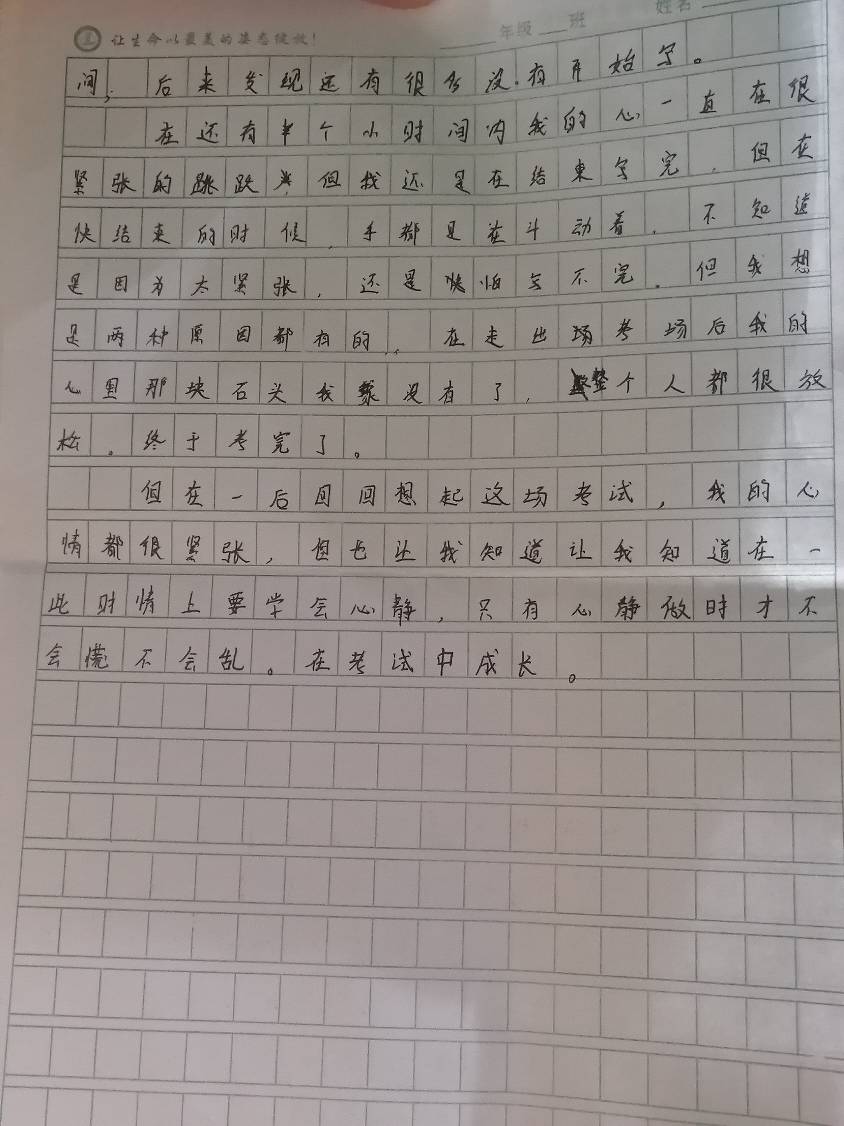 让生命以最美的姿态绽放!
年级 班 姓名
间, 后来发现还有很多没有开始写。
在还有半个小时间内我的心一直在很
紧张的跳跃 但我还是在结束写完.但在
快结束的时候,手都是在斗动着.不知道
是因为太紧张,还是快怕写不完.但我想
是两种原因都有的.在走出场考场后我的
心里那块石头我 没有了,整个人都很放
松。终于考完了。
但在一后回回想起这场考试,我的心
情都很紧张,但也让我知道让我知道在一
此时情上要学会心静,只有心静做时才不
会慌不会乱。在考试中成长。